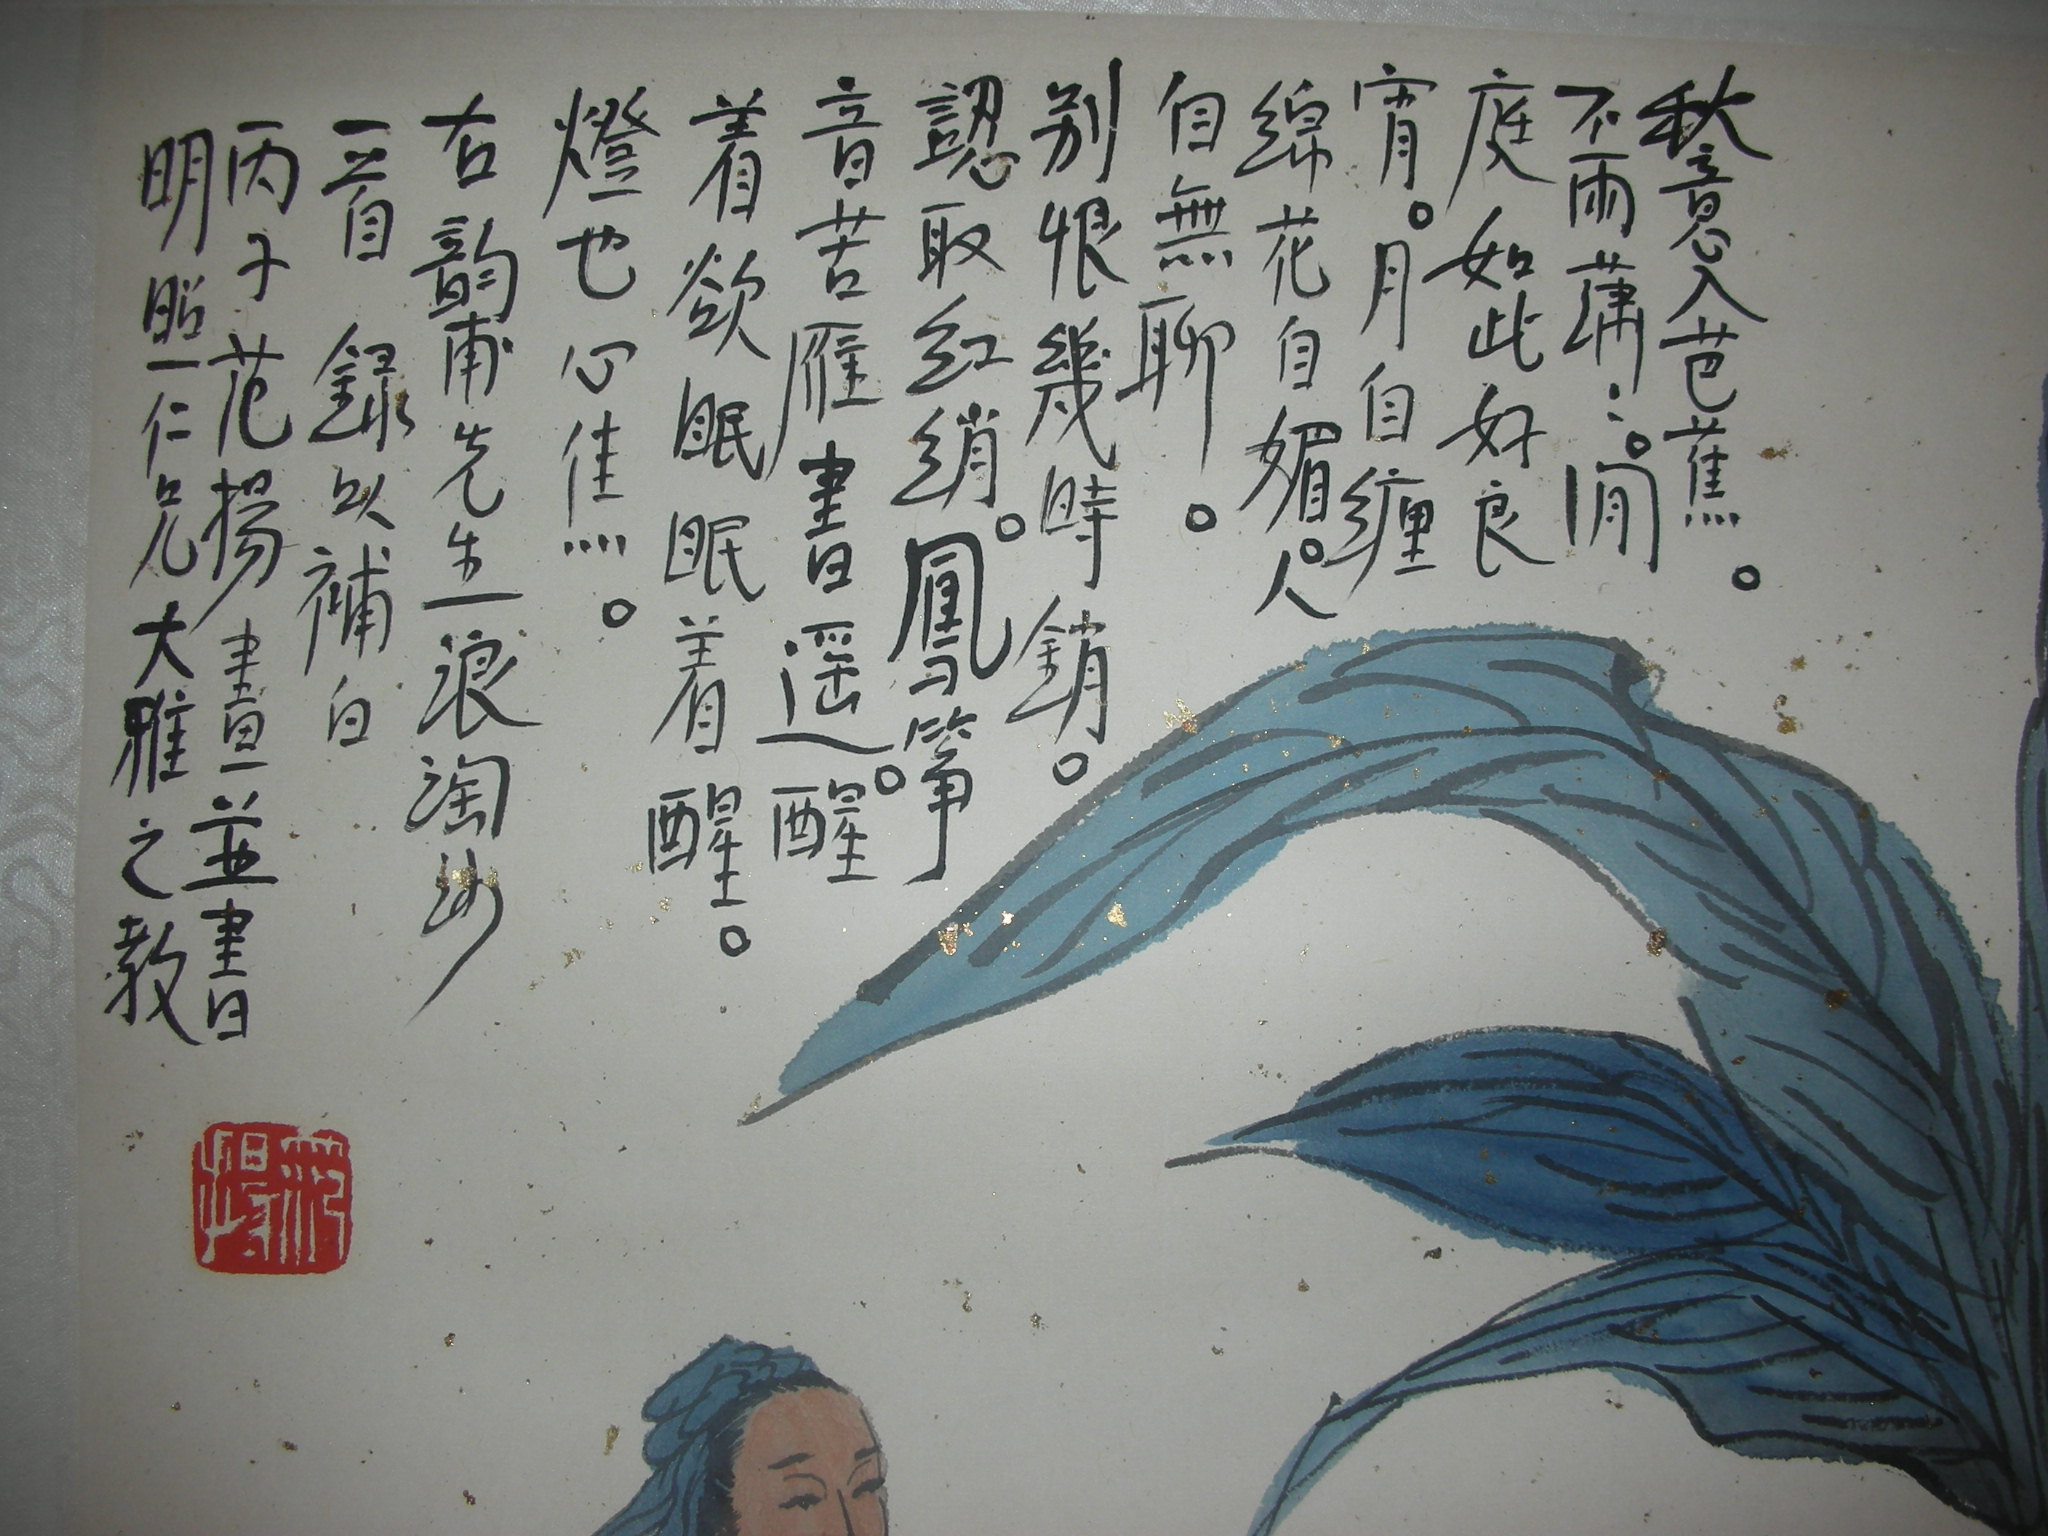 秋意入芭蕉。
不雨蕭〻。閒
庭如此好良
宵。月自纏
綿花自媚。人
自無聊。
别恨幾時銷。
認取紅綃。鳳箏
音苦雁書遥。醒
着欲眠眠着醒。
燈也心焦。
右韵甫先生浪淘沙
一首 録以補白
丙子范揚畫並書
明照仁兄大雅之教
范揚